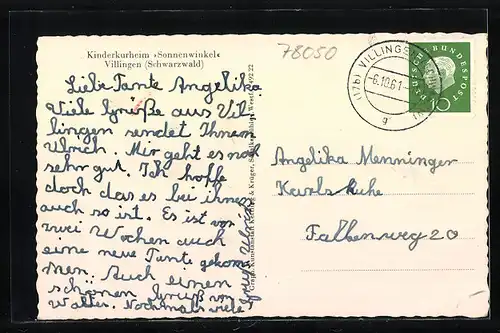 Kinderkurheim »Sonnenwinkel«
Villingen (Schwarzwald)
Liebe Tante Angelika
Viele Grüße aus Vil
lingen sendet Ihnen
Ulrich. Mir geht es noch
sehr gut. Ich hoffe
doch das es bei ihnen
auch so ist. Es ist vor
zwei Wochen auch
eine neue Tante gekom
men. Auch einen
schönen Gruß von
Walter. Nochmals viele
Grüße Ulrich
78050
(17b) VILLINGEN
-6.10.61
g
DEUTSCHE BUNDESPOST
10
Angelika Menninger
Karlsruhe
Falkenweg 20